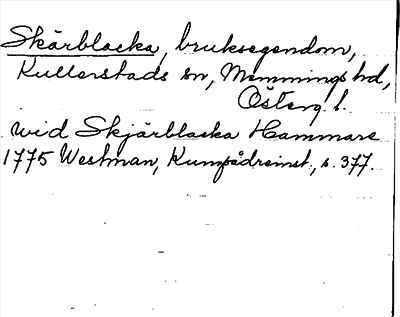 Skärblacka, bruksegendom,
Kullerstads sn, Memmings hd,
Österg. l.
wid Skjärblacka Hammare
1775 Westman, Kunskådreinst., s. 377.